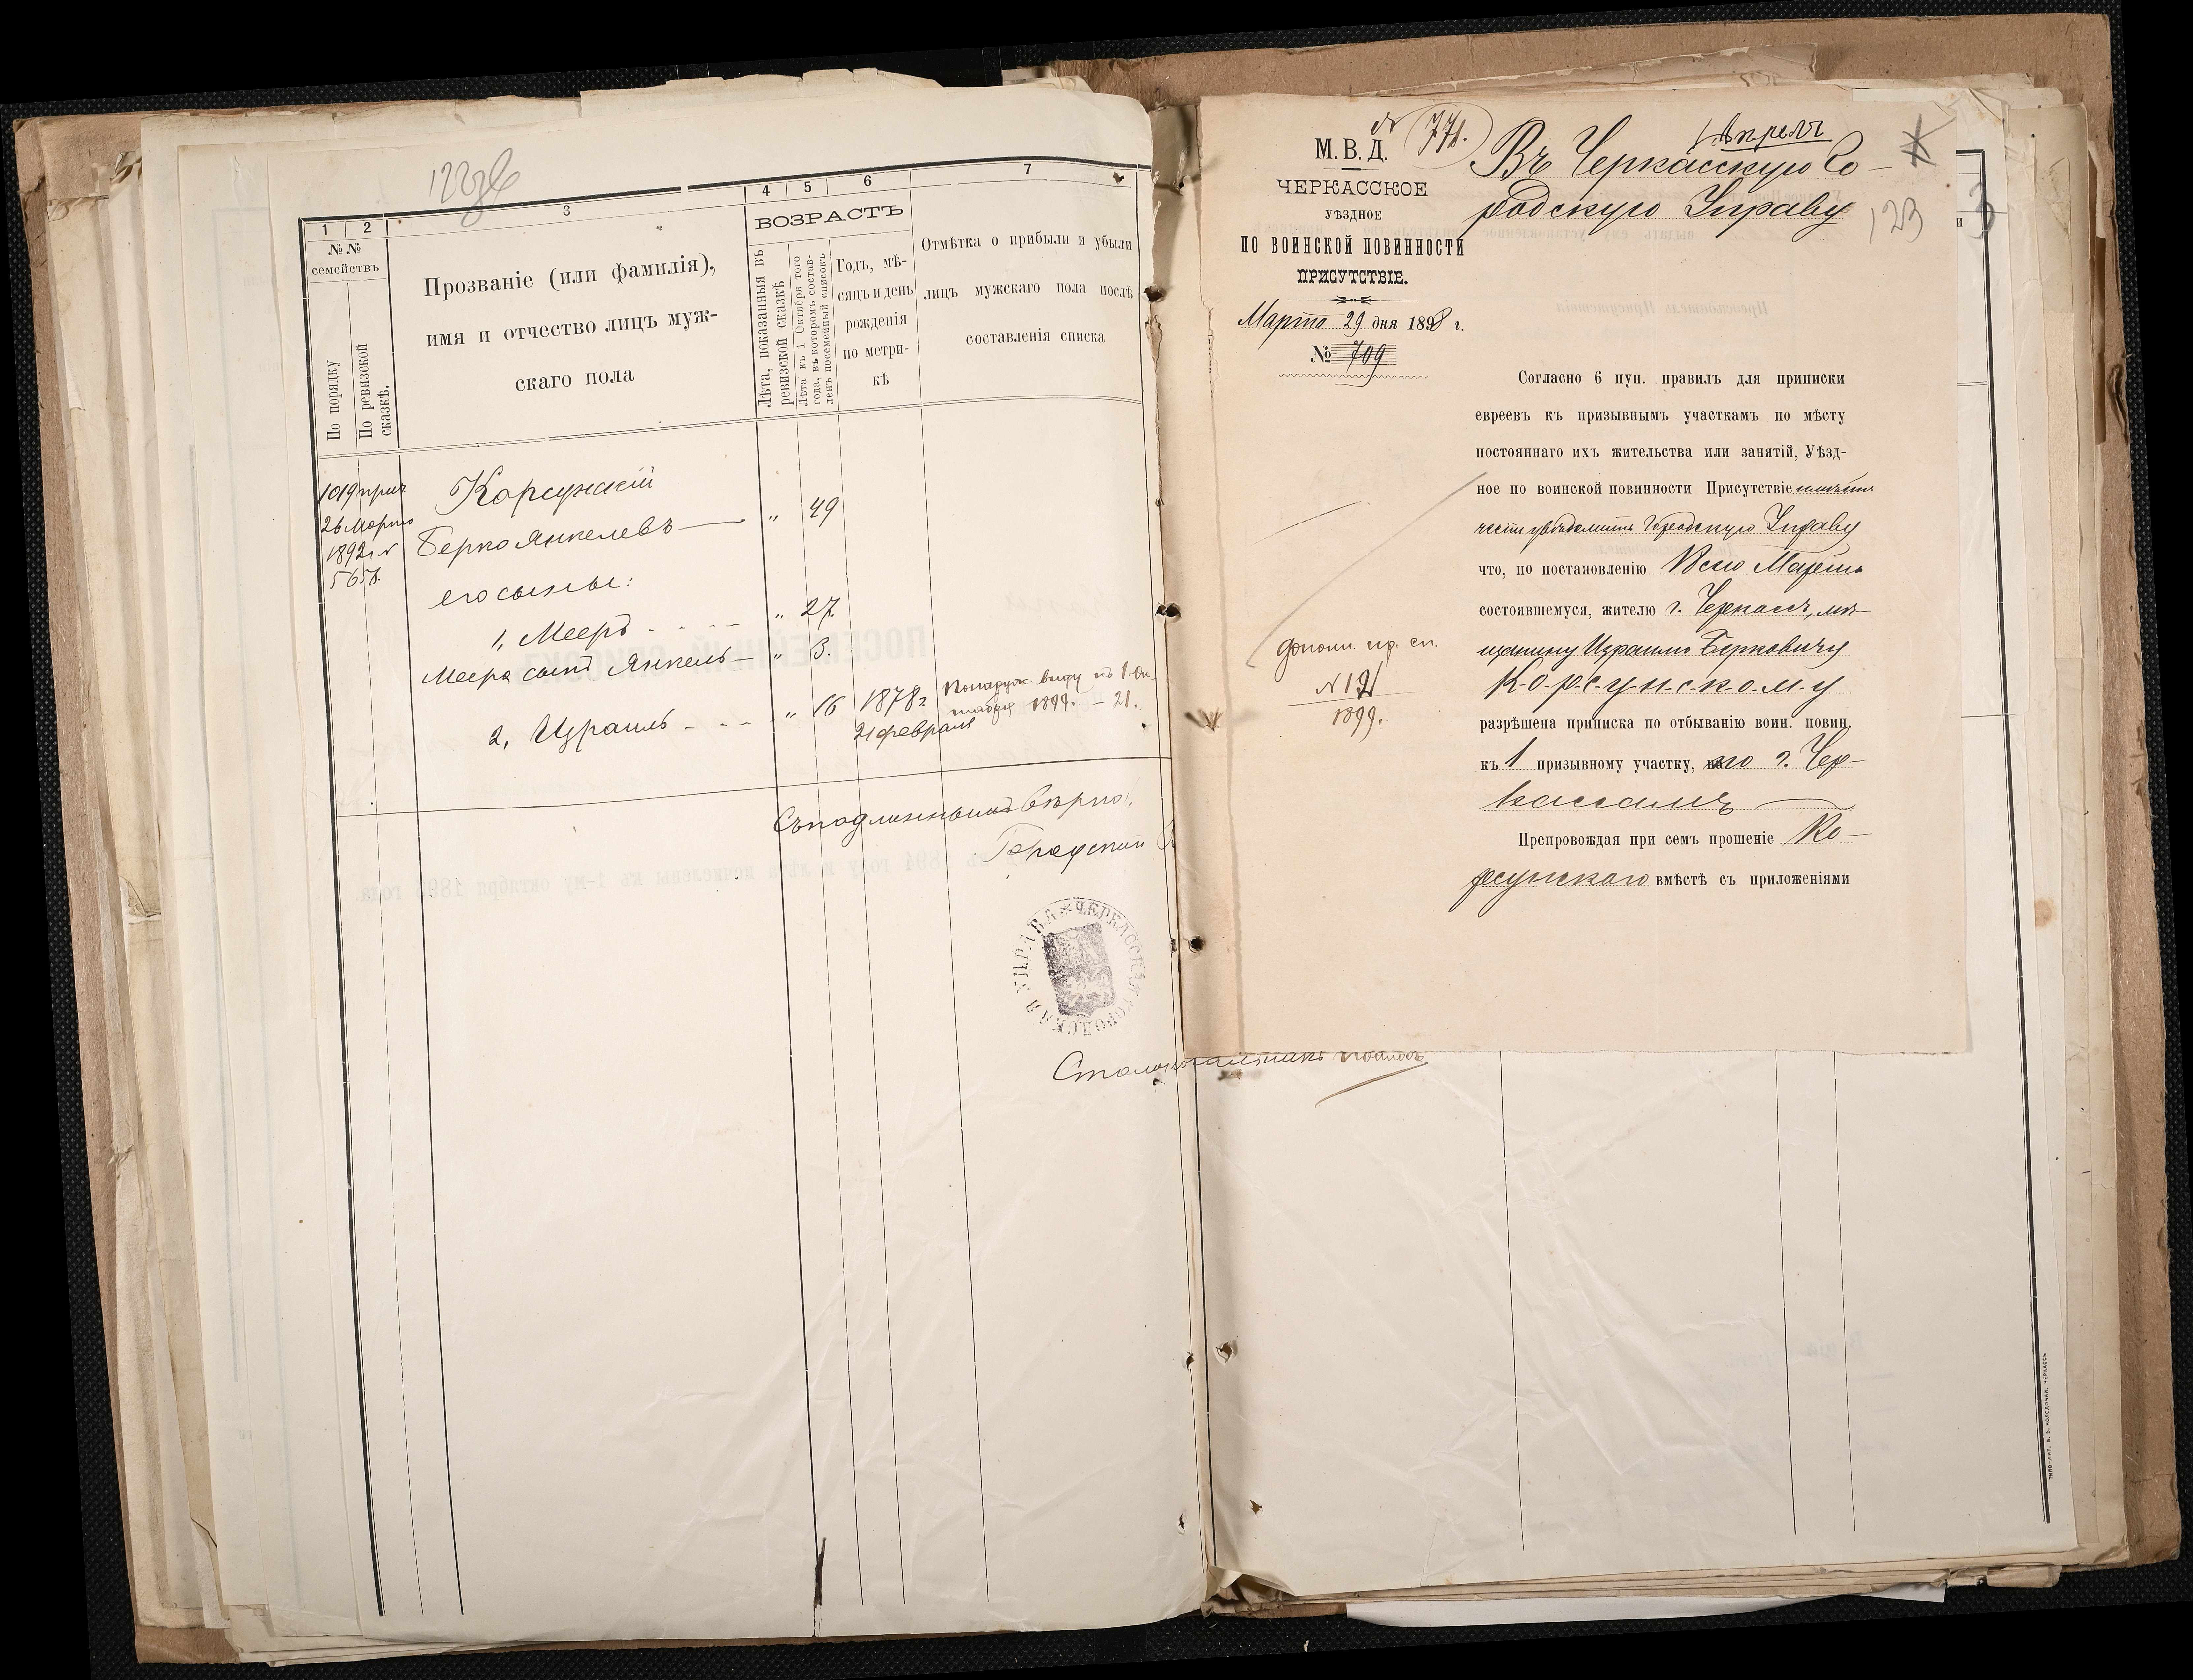 1 2 3 4 5 6 7
№№ семействъ
По порядку
По ревизской сказкѣ.
Прозваніе (или фамилія),
имя и отчество лицъ муж-
скаго пола
ВОЗРАСТЪ
Лѣта, показанныя въ ревизской сказкѣ
Лѣта къ 1 Октября того года, въ которомъ составленъ посемейный списокъ
Годъ, мѣ-
сяцъ и день
рожденія
по метри-
кѣ
Отмѣтка о прибыли и убыли
лицъ мужскаго пола послѣ
составленія списка
1019 прич.
26 Марта
1892 г. №
5658.
Корсунскій
Берко Янкелевъ — " 49
его сыны:
1, Мееръ - - - - " 27
Меера сынъ Янкель — " 3.
2, Израиль - - - " 16 1878 г
21 февраля
1899. – 21.
Съ подлиннымъ вѣрно:
Городской
ЧЕРКАССКАЯ ГОРОДСКАЯ УПРАВА
Столоначальникъ
№ 771.
М. В. Д.
ЧЕРКАССКОЕ
УѢЗДНОЕ
ПО ВОИНСКОЙ ПОВИННОСТИ
ПРИСУТСТВІЕ.
Марта 29 дня 1898 г.
№ 709
1 Апрѣля
Въ Черкасскую Го-
родскую Управу
123
Согласно 6 пун. правилъ для приписки
евреевъ къ призывнымъ участкамъ по мѣсту
постояннаго ихъ жительства или занятій, Уѣзд-
ное по воинской повинности Присутствіе имѣетъ
честь увѣдомить Городскую Управу
что, по постановленію Марта
состоявшемуся, жителю г. Черкассъ, мѣ-
щанину Израилю Берковичу
К-о-р-с-у-н-с-к-о-м-у
разрѣшена приписка по отбыванію воин. повин.
къ 1 призывному участку, по г. Чер-
кассамъ —
Препровождая при семъ прошеніе Ко-
рсунскаго вмѣстѣ съ приложеніями
дополн. пр. сп.
№ 121
1899.
ТИПО-ЛИТ. В. В. КОЛОДОЧКИ, ЧЕРКАССЪ